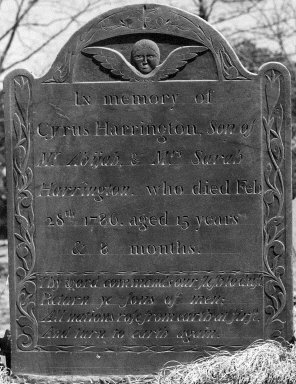 In memory of
Cyrus Harrington, Son of
Mr. Abijah, & Mrs. Sarah
Harrington, who died Feb.
28th 1786, aged 15 years
& 8 months.
Thy word commands our flesh to dust,
Return ye sons of men:
All nations rose from earth at first,
And turn to earth again.